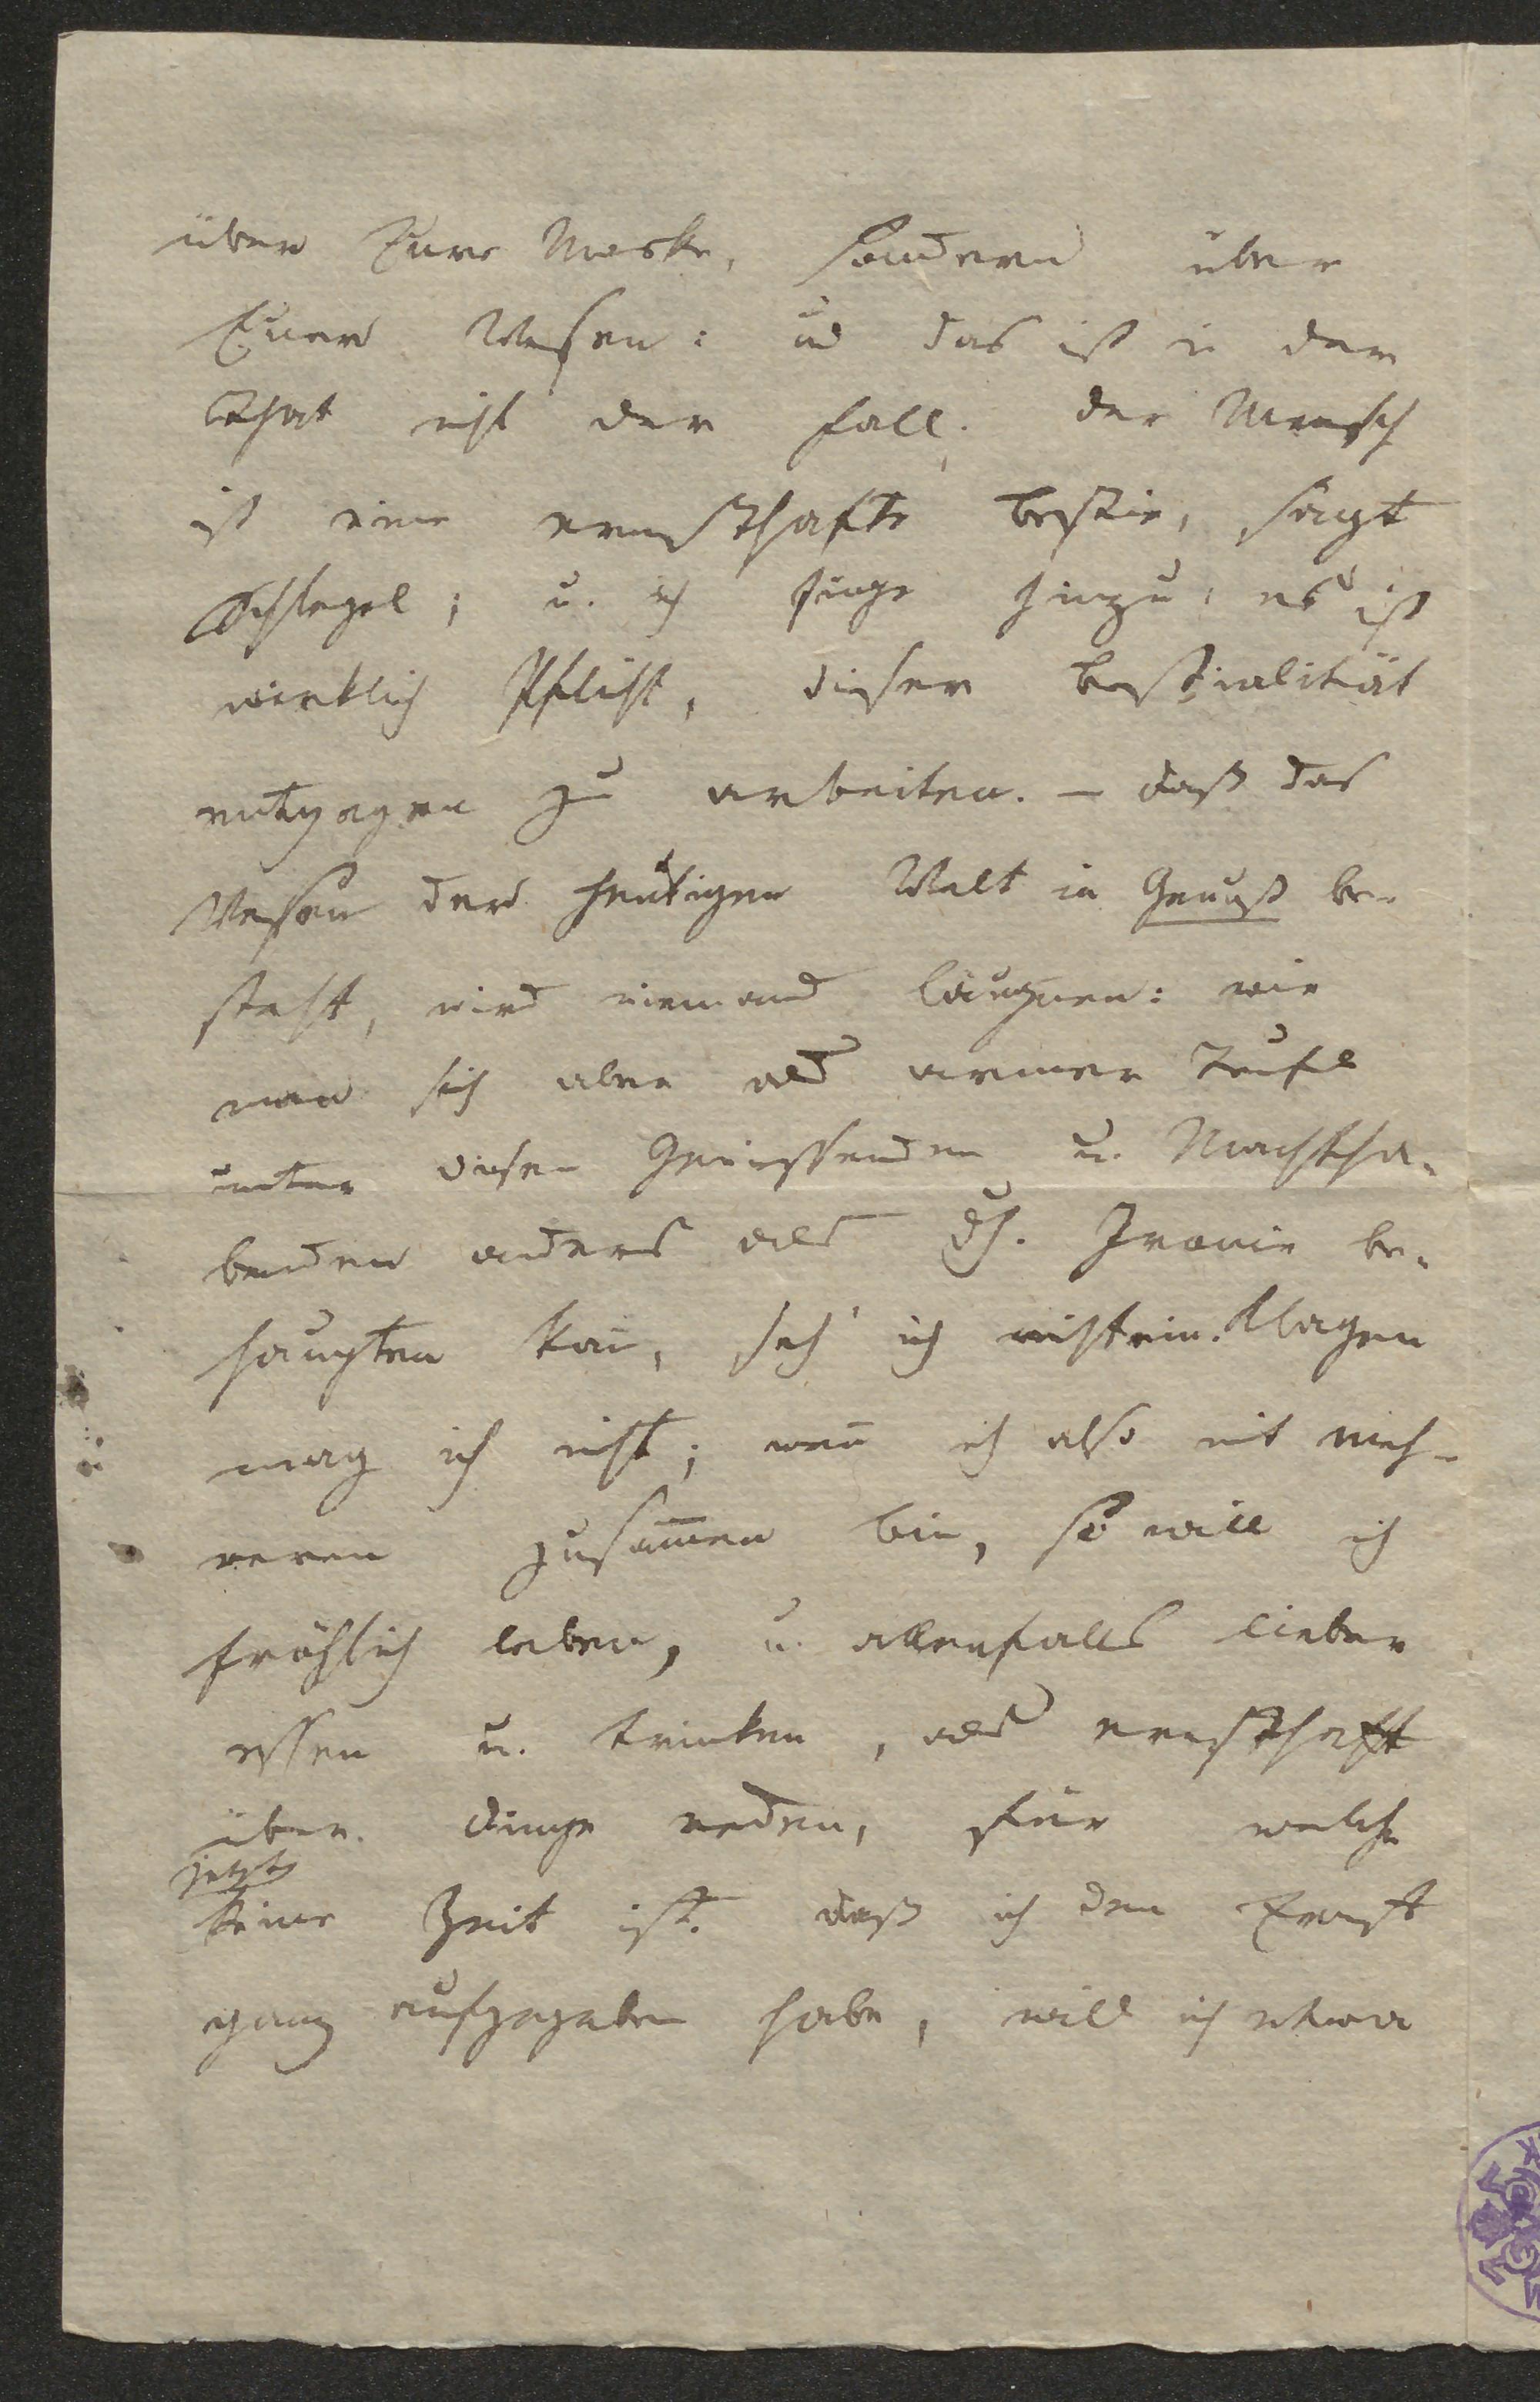 über Eure Maske, sondern über
Euer Wesen: ud das ist in der
That nicht der Fall. der Mensch
ist eine ernsthafte Bestie, sagt
Schlegel; u. ich füge hinzu: es ist
wirklich Pflicht, dieser Bestialität
entgegen zu arbeiten. – daß das
Wesen der heutigen Welt in Genuß be-
steht, wird niemand läugnen: wie
man sich aber als armer Teufel
unter diesen Geniessenden u. Machtha-
benden anders als dh. Ironie be-
haupten kan̄, seh' ich nicht ein. Klagen
mag ich nicht; wen̄ ich also mit meh-
reren zusam̄en bin, so will ich
fröhlich leben, u. allenfalls lieber
essen u. trinken, als ernsthaft
über Dinge reden, für welche
jetzt
keine Zeit ist. daß ich den Ernst
ganz aufgegeben habe, will ich etwa